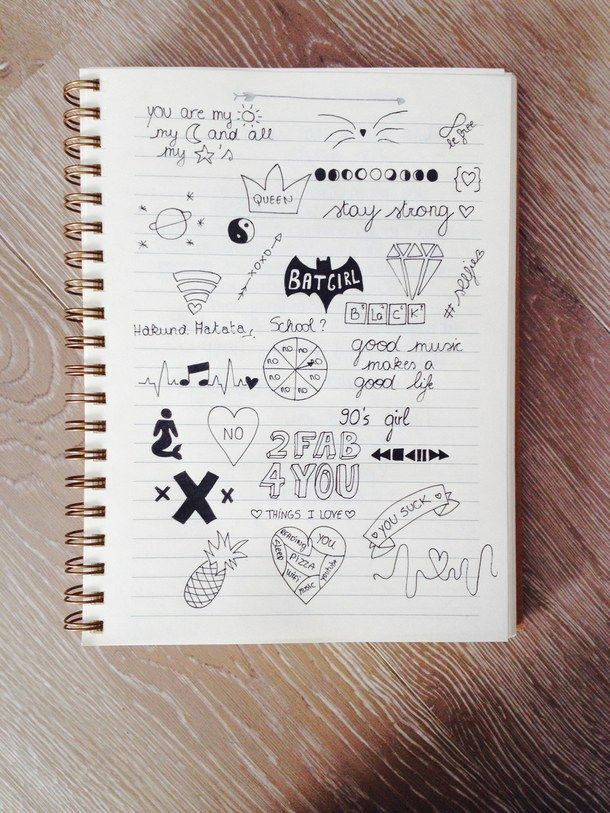 you are my
my and all
my 's
be free
QUEEN
stay strong
XOXO
BATGIRL
#selfie
BLaCK
Hakuna Matata
School?
NO NO NO NO NO NO NO NO
good music
makes a
good life
90's girl
NO
2 FAB
4 YOU
THINGS I LOVE
READING
YOU
SLEEP
PIZZA
WIFI
MUSIC
YOUTUBE
YOU SUCK